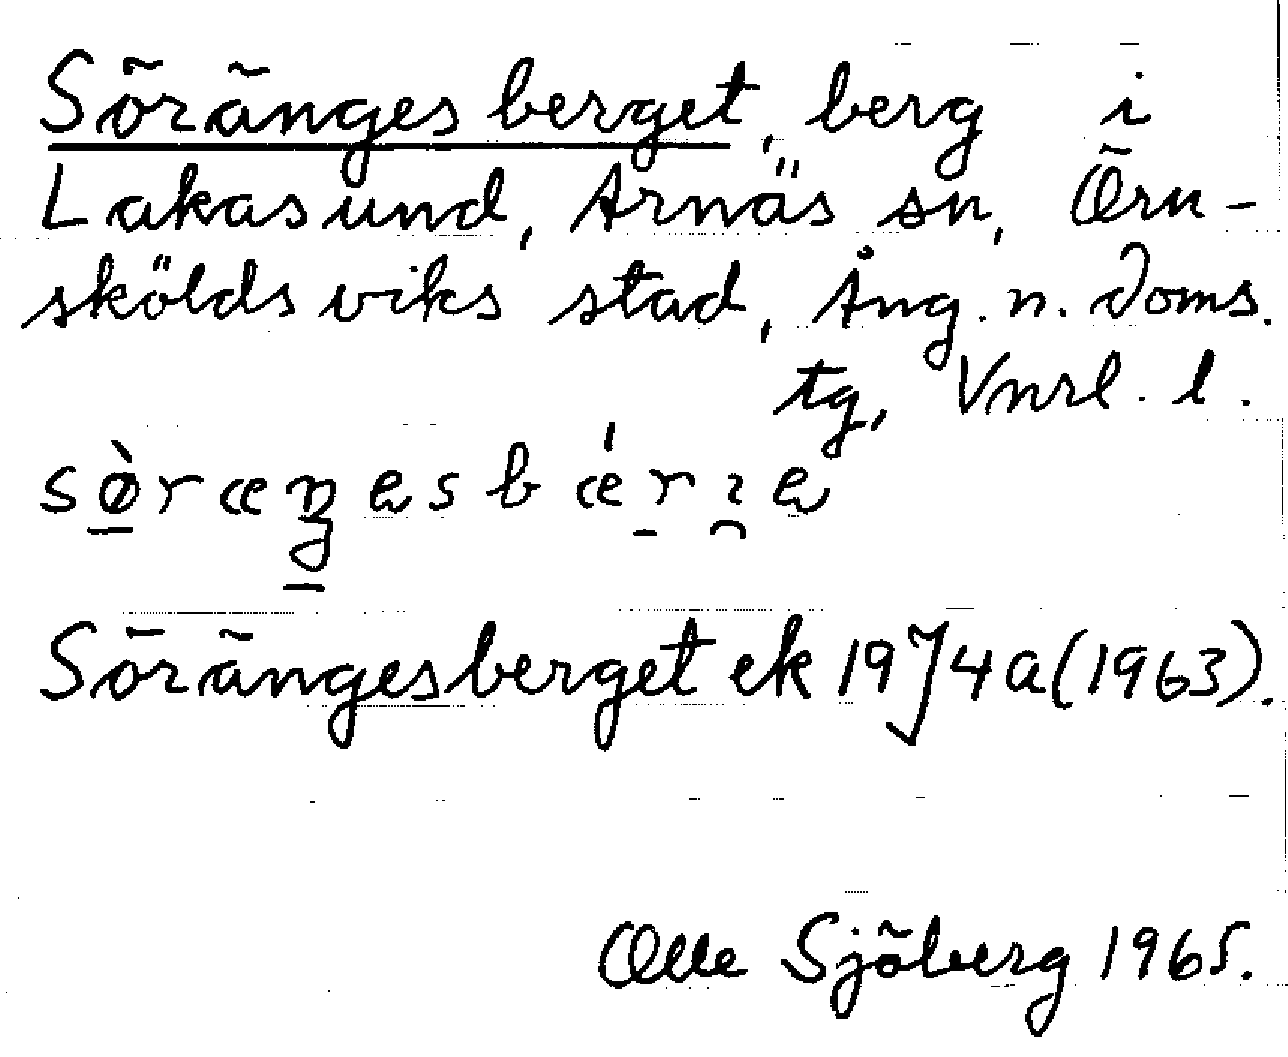 Söränges berget, berg i
Lakasund, Arnäs sn, Örn-
sköldsviks stad, Ång. n. doms.
tg, Vnrl. l.
Sörängesberget ek 19J4a (1963).
Olle Sjöberg 1965.